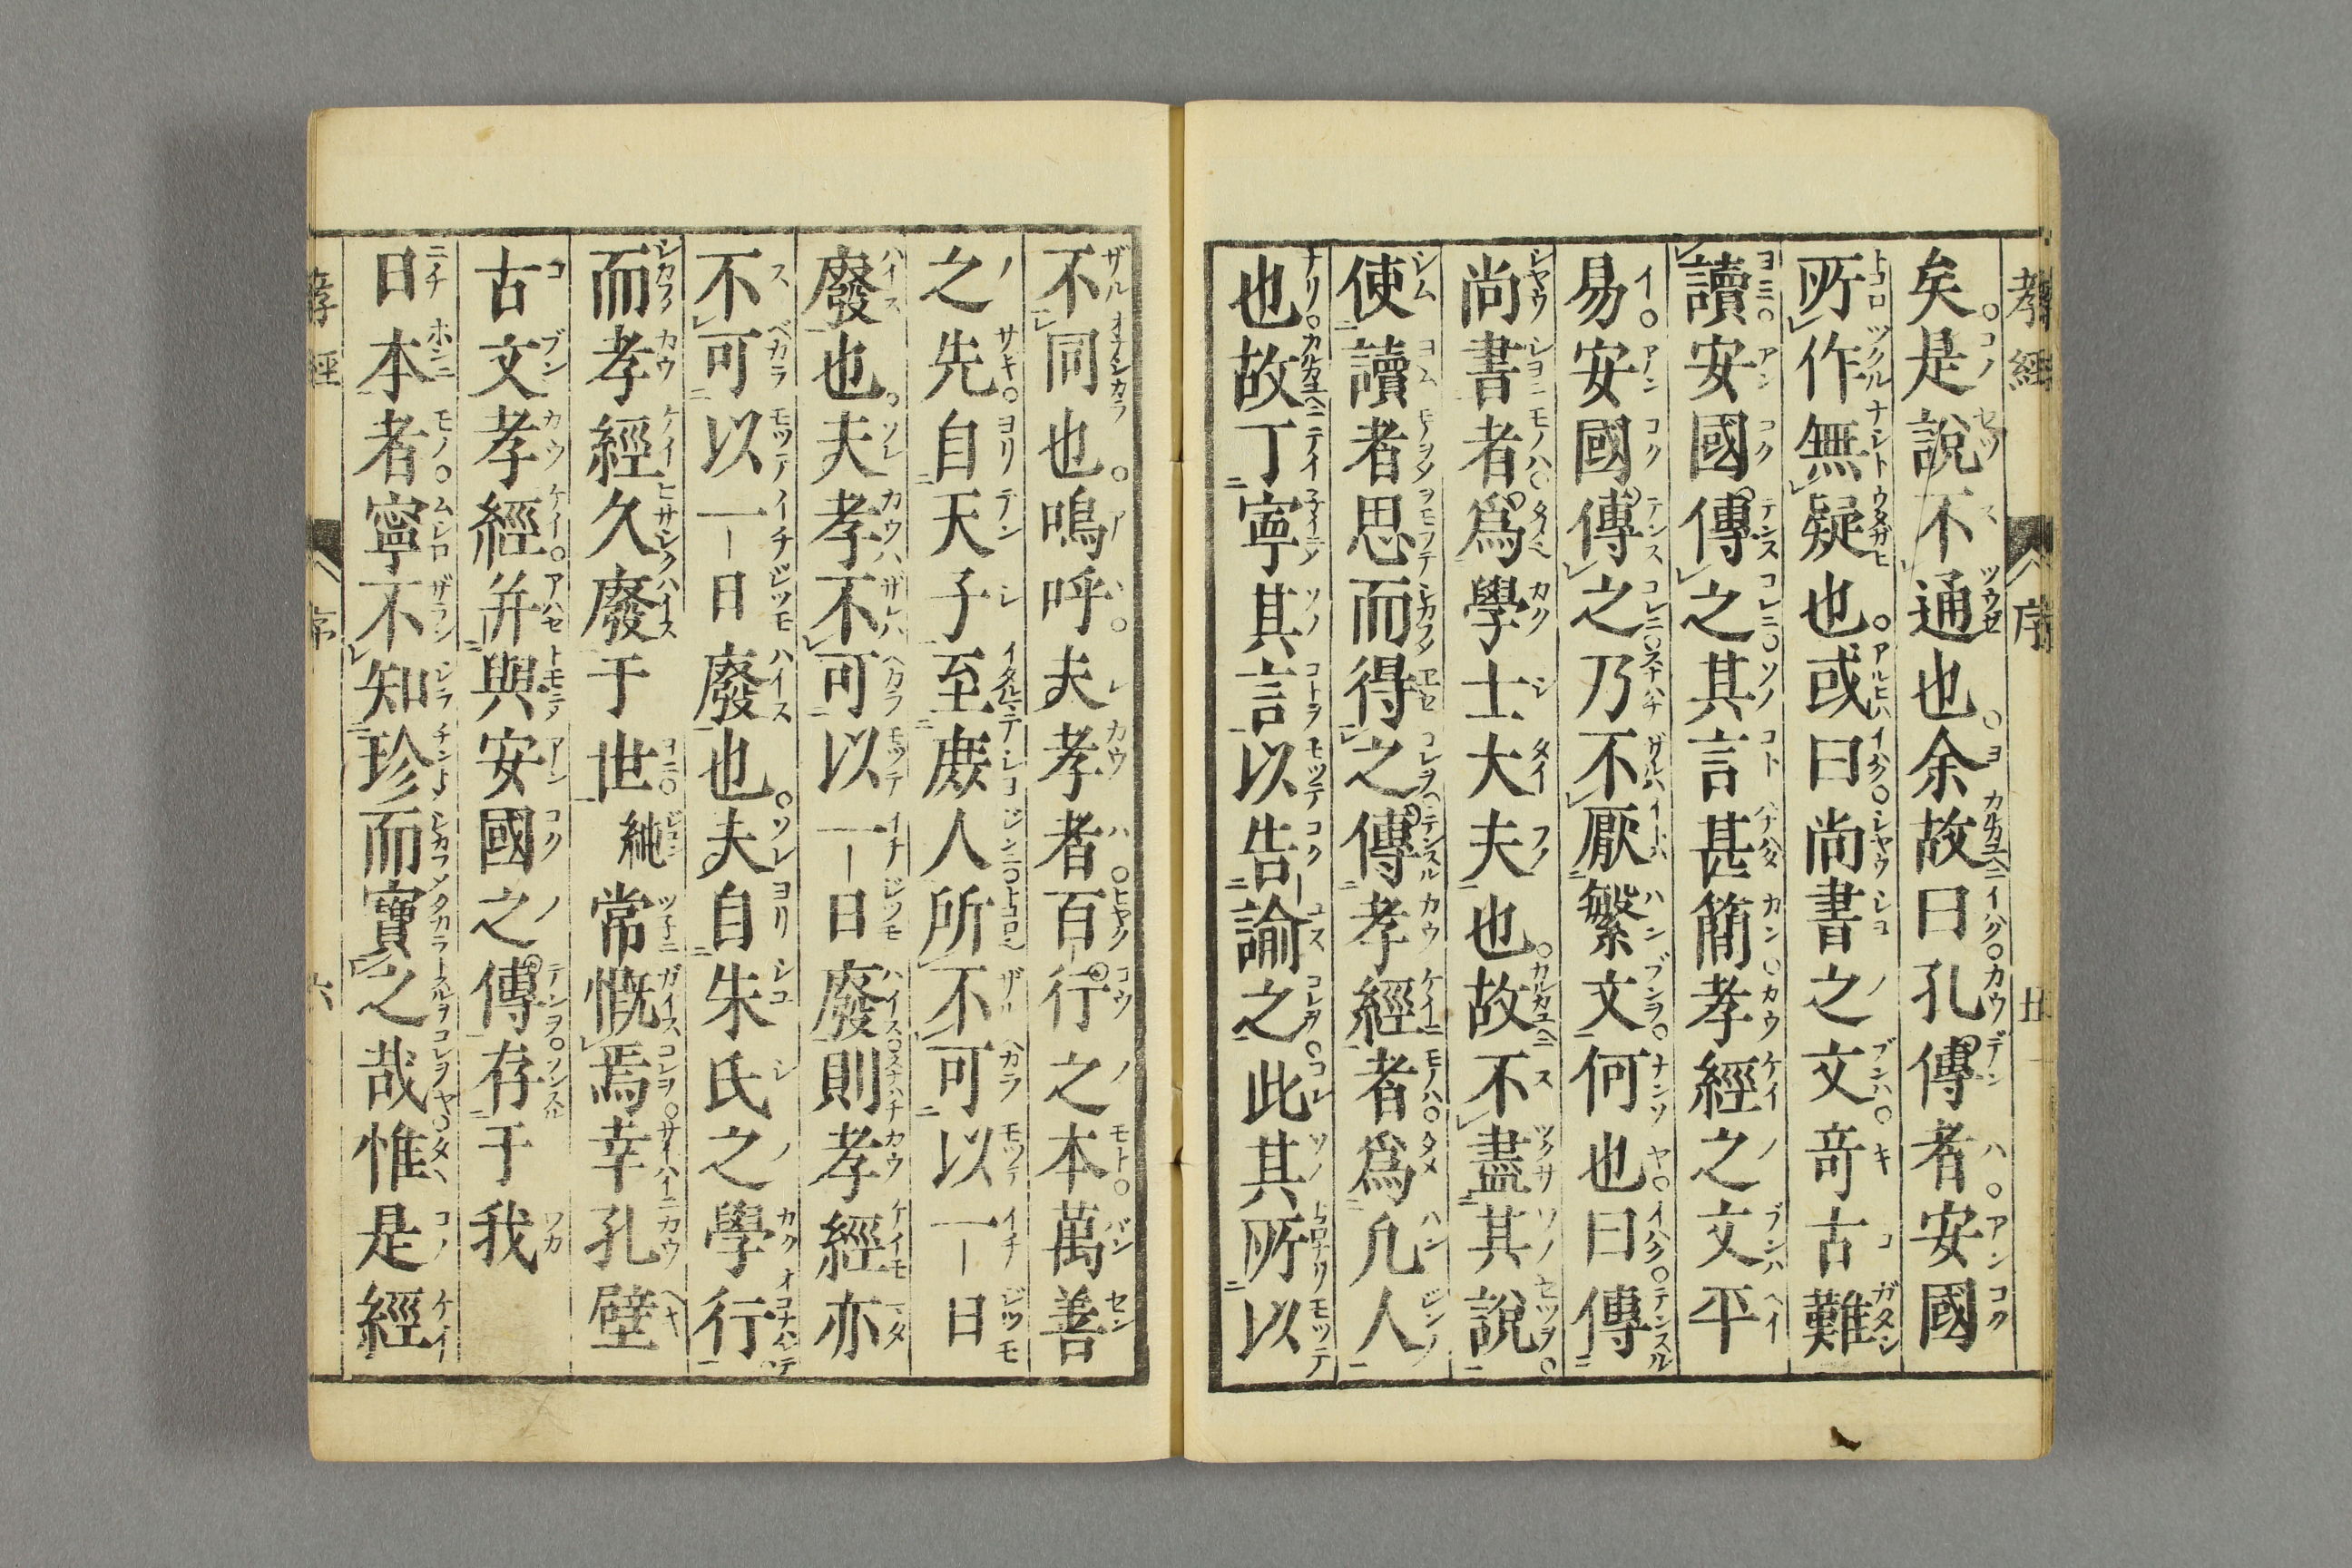 孝經 序 五
矣是說不通也余故曰孔傳者安國
所作無疑也或曰尚書之文竒古難
讀安國傳之其言甚簡孝經之文平
易安國傳之乃不厭繁文何也曰傳
尚書者爲學士大夫也故不盡其說
使讀者思而得之傳孝經者爲凡人
也故丁寧其言以告諭之此其所以
不同也嗚呼夫孝者百行之本萬善
之先自天子至庻人所不可以一日
廢也夫孝不可以一日廢則孝經亦
不可以一日廢也夫自朱氏之學行
而孝經久廢于世純常慨焉幸孔壁
古文孝經并與安國之傳存于我
日本者寧不知珍而寶之哉惟是經
孝經 序 六